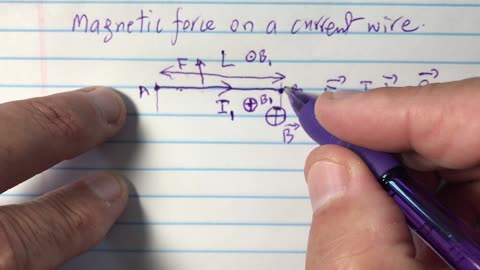 Magnetic force on a current wire.
F L ⊙B₁
A
I₁ ⊕B₁
⊕
B⃗